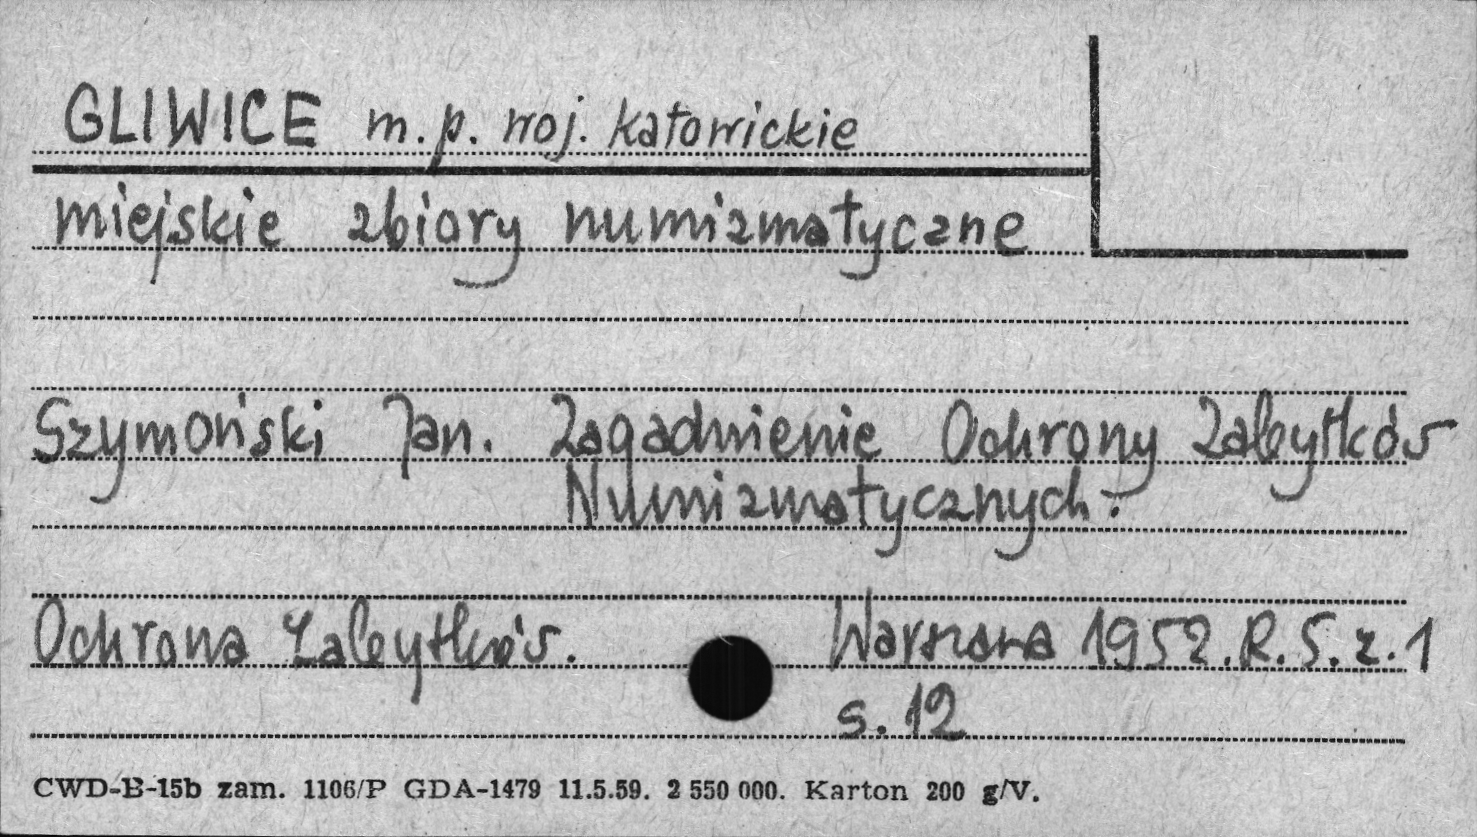 GLIWICE m.p. woj. katowickie
miejskie zbiory numizmatyczne
Szymoński Jan. Zagadnienie Ochrony Zabytków
Numizmatycznych.
Ochrona Zabytków. Warszawa 1952. R. 5. z. 1
s. 12
CWD-B-15b zam. 1106/P GDA-1479 11.5.59. 2 550 000. Karton 200 g/V.